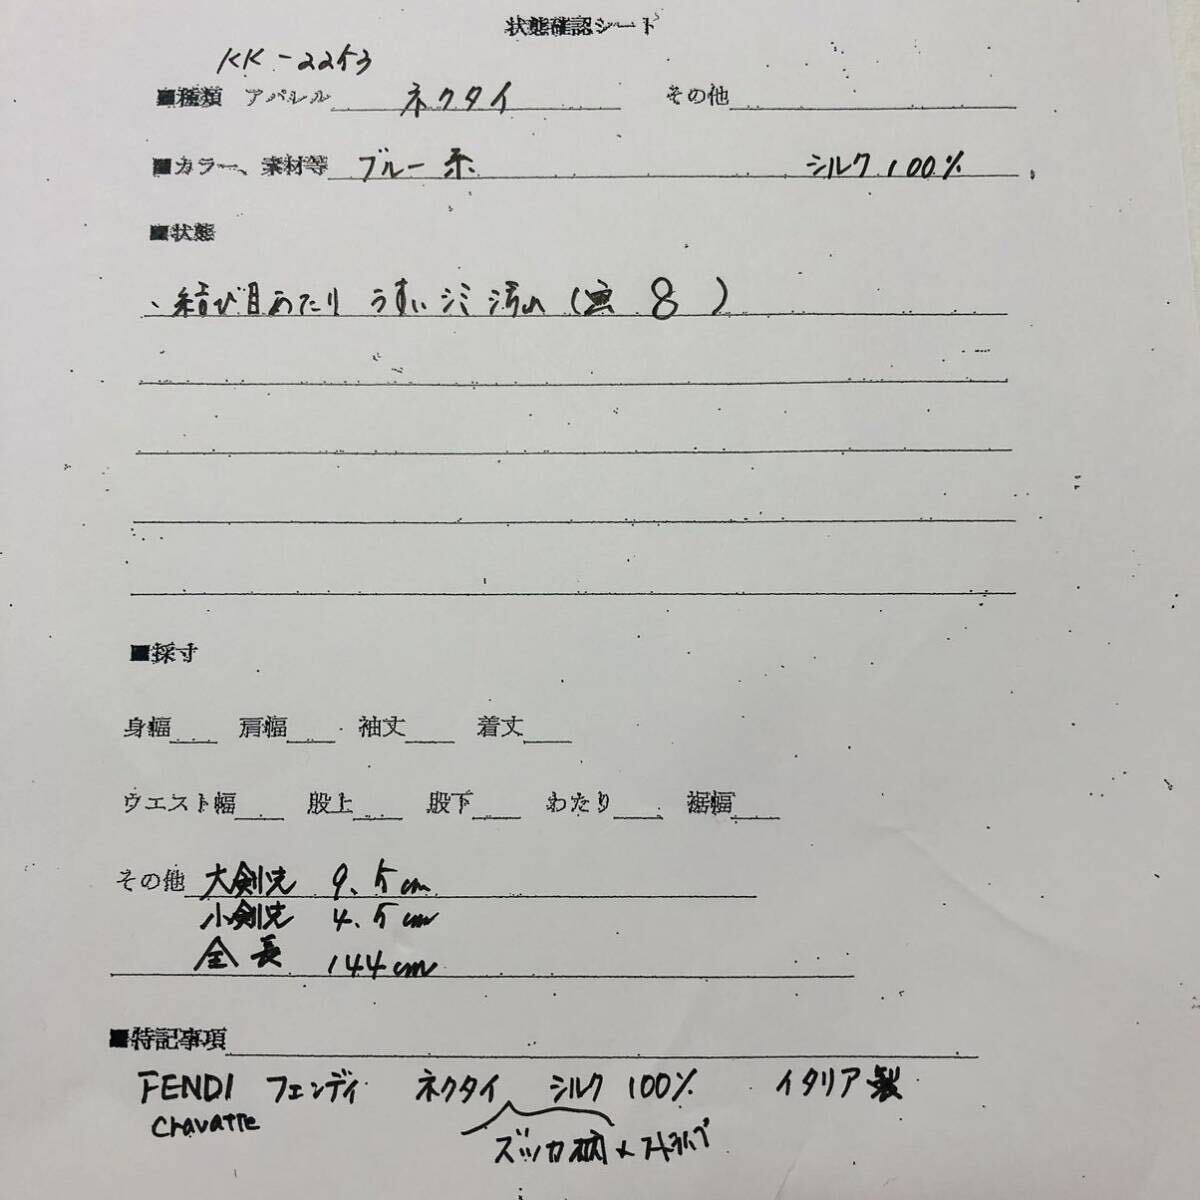 状態確認シート
KK-2253
■種類 アパレル ネクタイ その他
■カラー、素材等 ブルー系 シルク100%
■状態
、結び目あたり うすいシミ 汚れ (画 8 )
■採寸
身幅 肩幅 袖丈 着丈
ウエスト幅 股上 股下 わたり 裾幅
その他 大剣先 9.5cm
小剣先 4.5cm
全長 144cm
■特記事項
FENDI フェンディ ネクタイ シルク 100% イタリア製
Cravatte
ズッカ柄×ストライプ